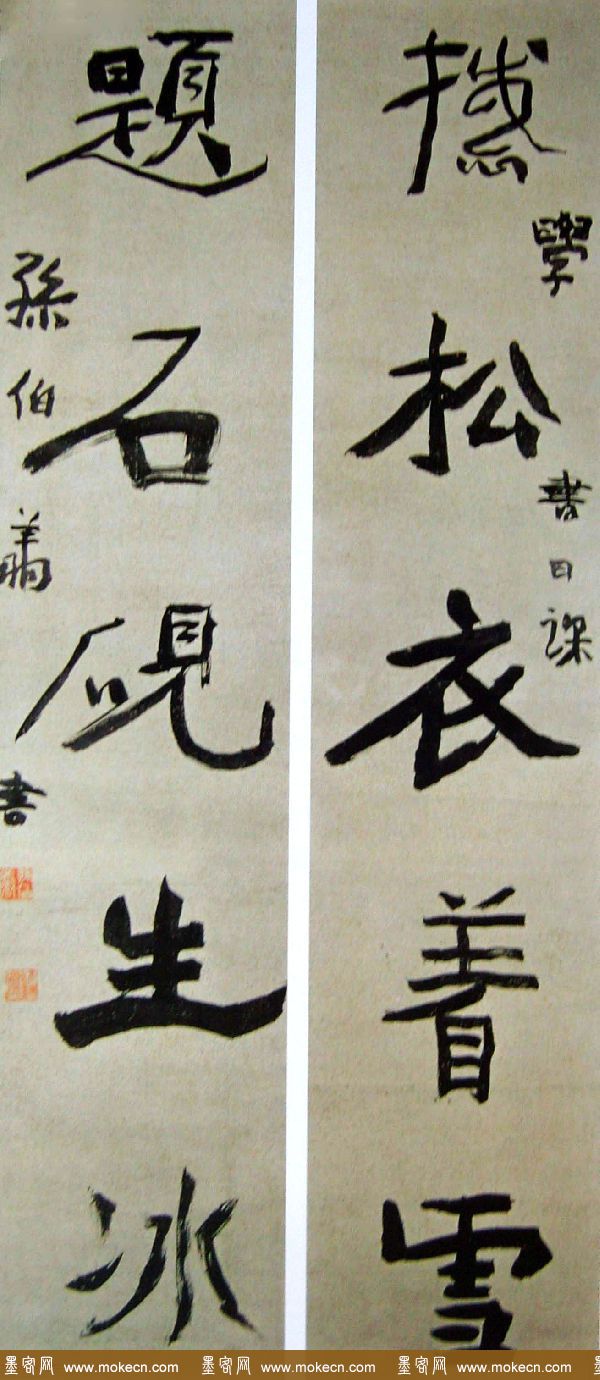 撼松衣着雪
學書日課
題石硯生冰
孫伯翔書
墨客网 www.mokecn.com 墨客网 www.mokecn.com 墨客网 www.mokecn.com